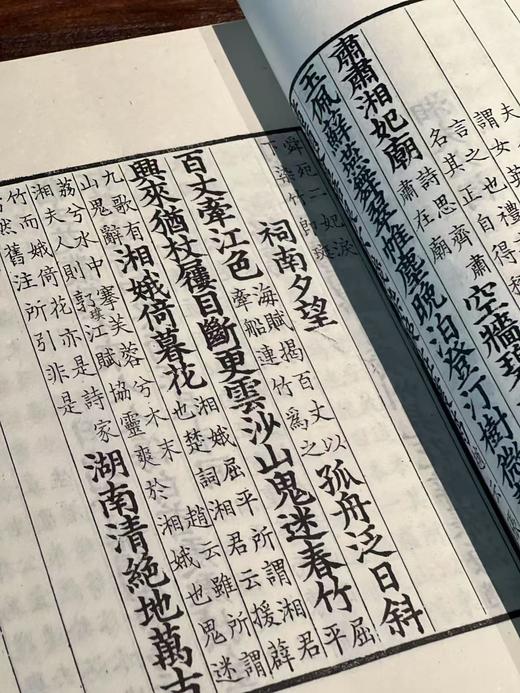 肅肅湘妃廟
名詩思齊肅
肅在廟
空牆碧
玉佩蘚燕舞翠帷塵晚泊登汀樹微
舜死二妃淚
下染竹即斑
祠南夕望
百丈牽江色
海賦揭百丈以
牽船連竹爲之
孤舟泛日斜
興來猶杖屨目斷更雲沙山鬼迷春竹
屈平
九歌有
山鬼辭
湘娥倚暮花
湘娥屈平所謂湘君
也楚詞湘君云援薜
荔兮水中搴芙蓉兮木末
郭璞江賦協靈爽於湘娥也
趙云雖所謂
湘夫人則鬼迷
竹而娥倚花亦是詩家
當然舊注所引非是
湖南清絶地萬古